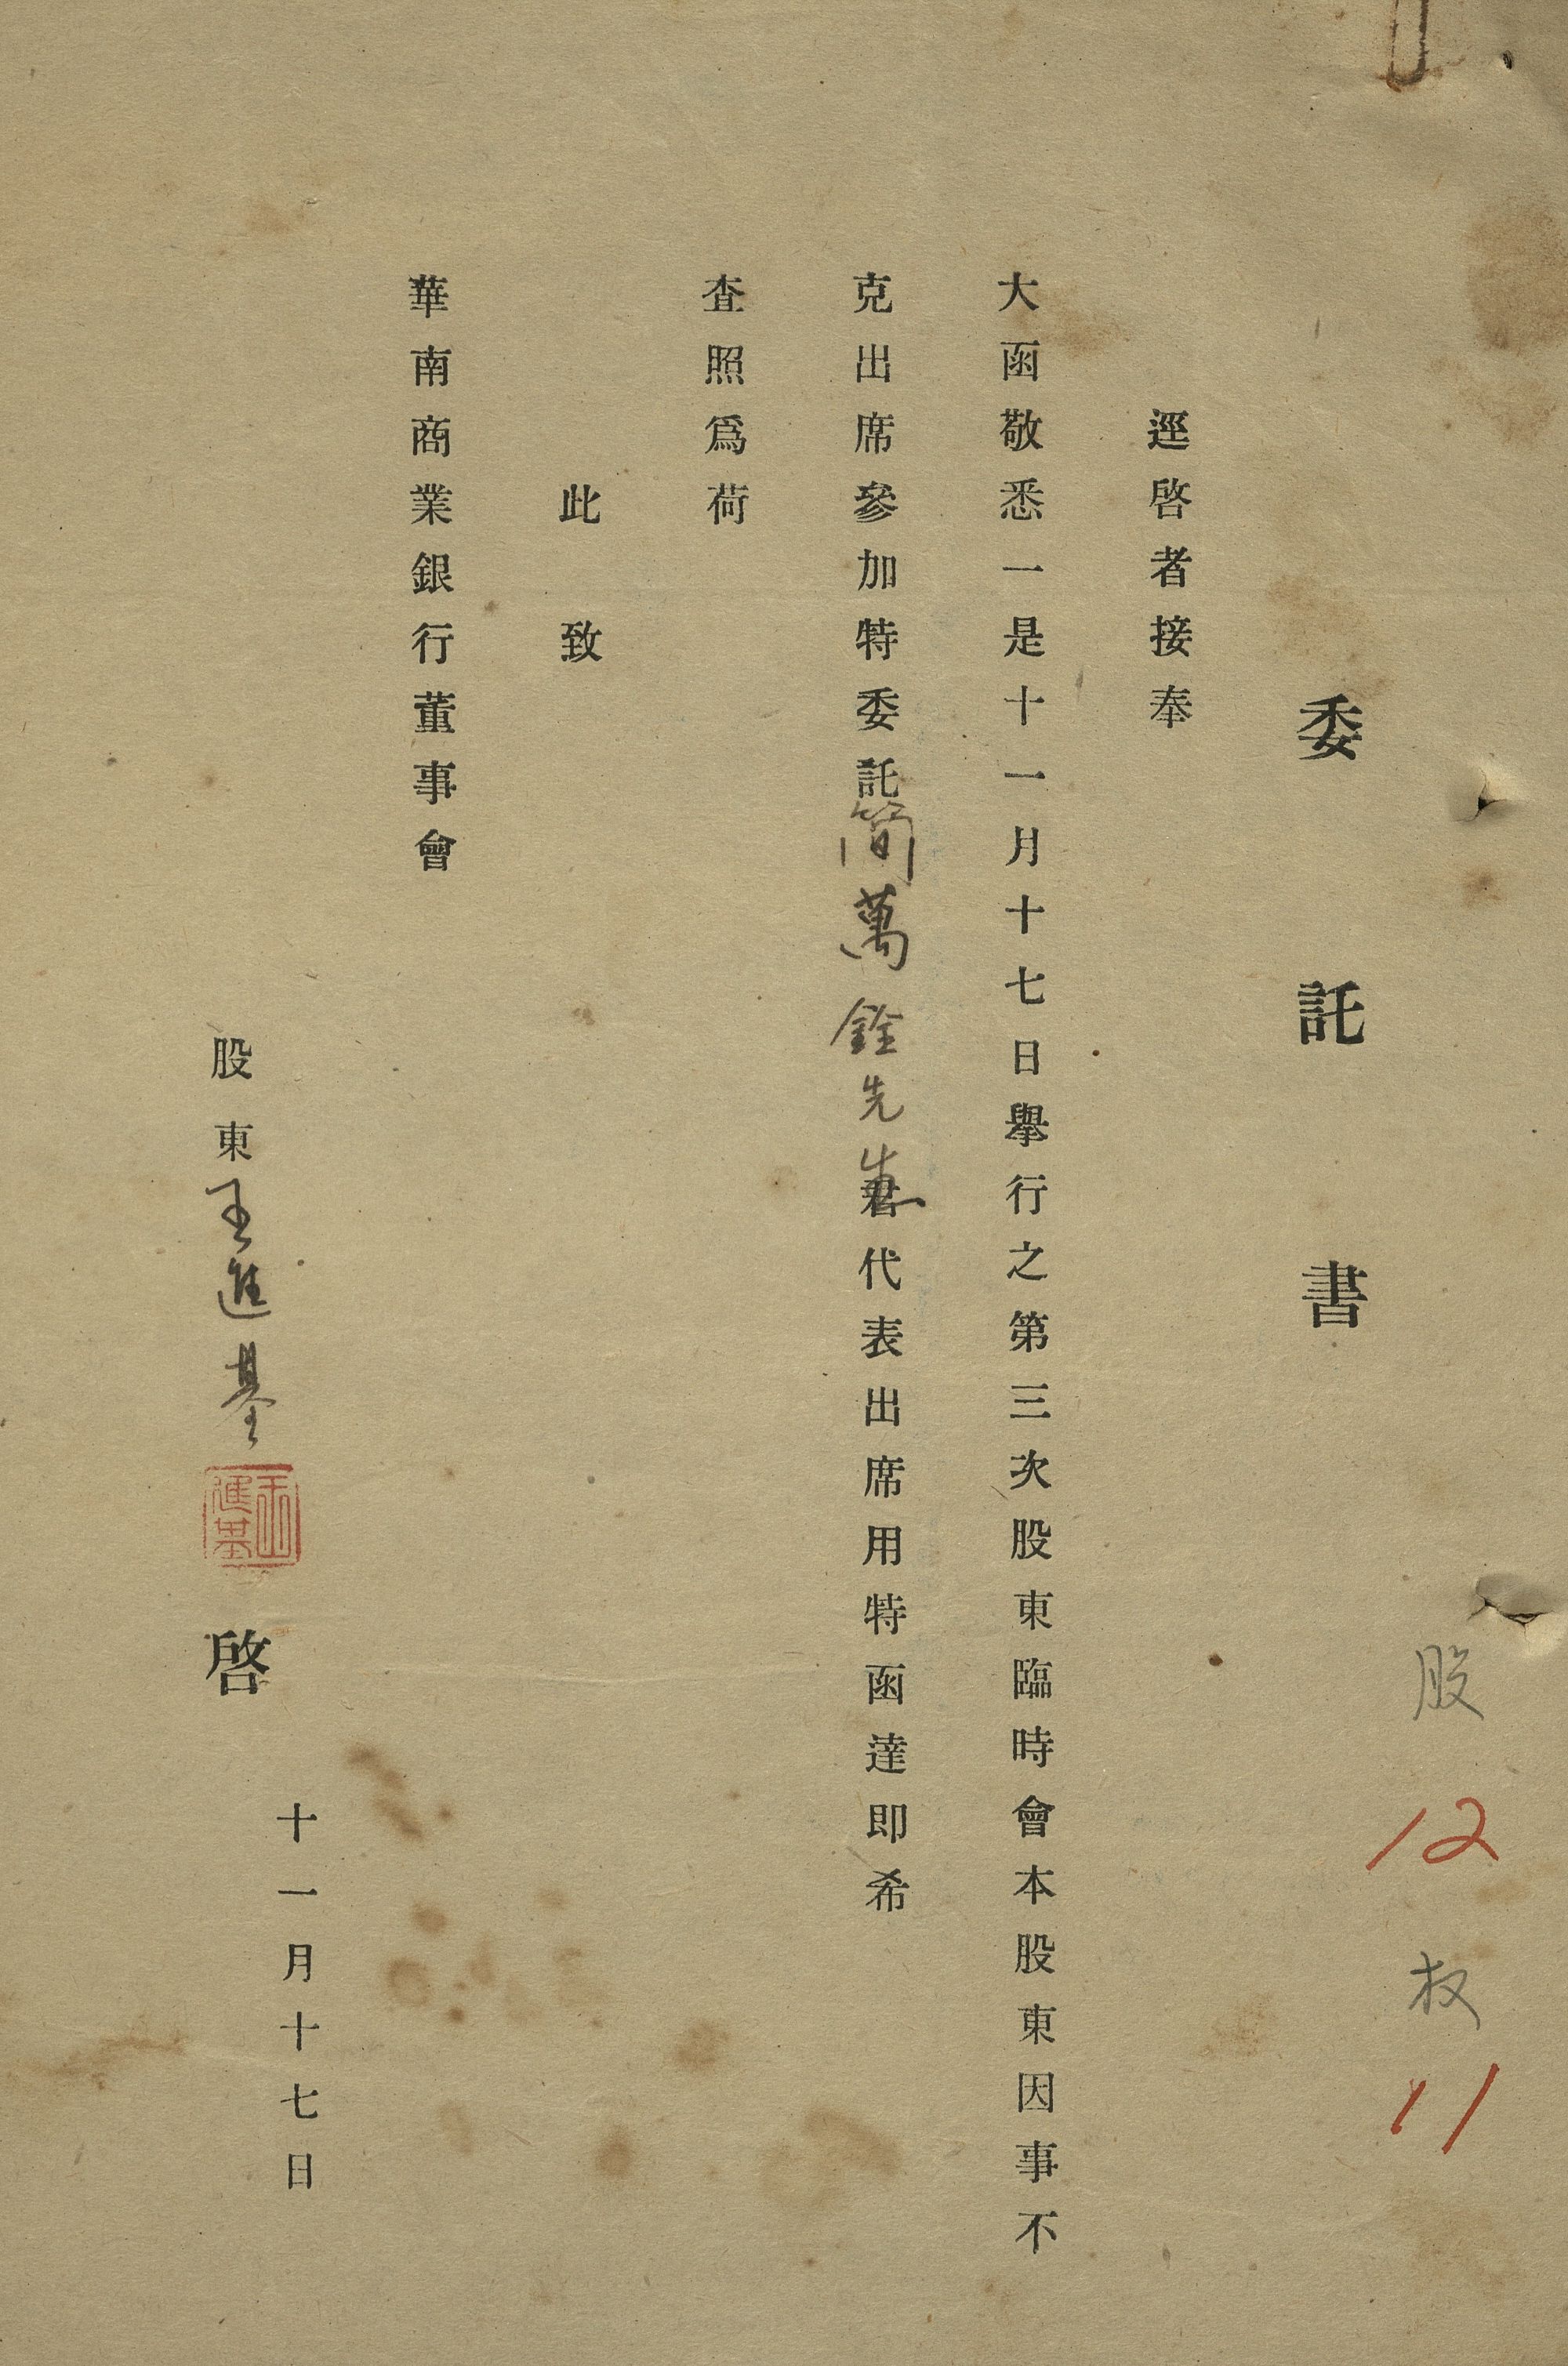 股 12 权 11
委託書
逕啓者接奉
大函敬悉一是十一月十七日舉行之第三次股東臨時會本股東因事不
克出席參加特委託簡萬銓先生君代表出席用特函達即希
查照爲荷
此致
華南商業銀行董事會
十一月十七日
股東王進基啓
王進基